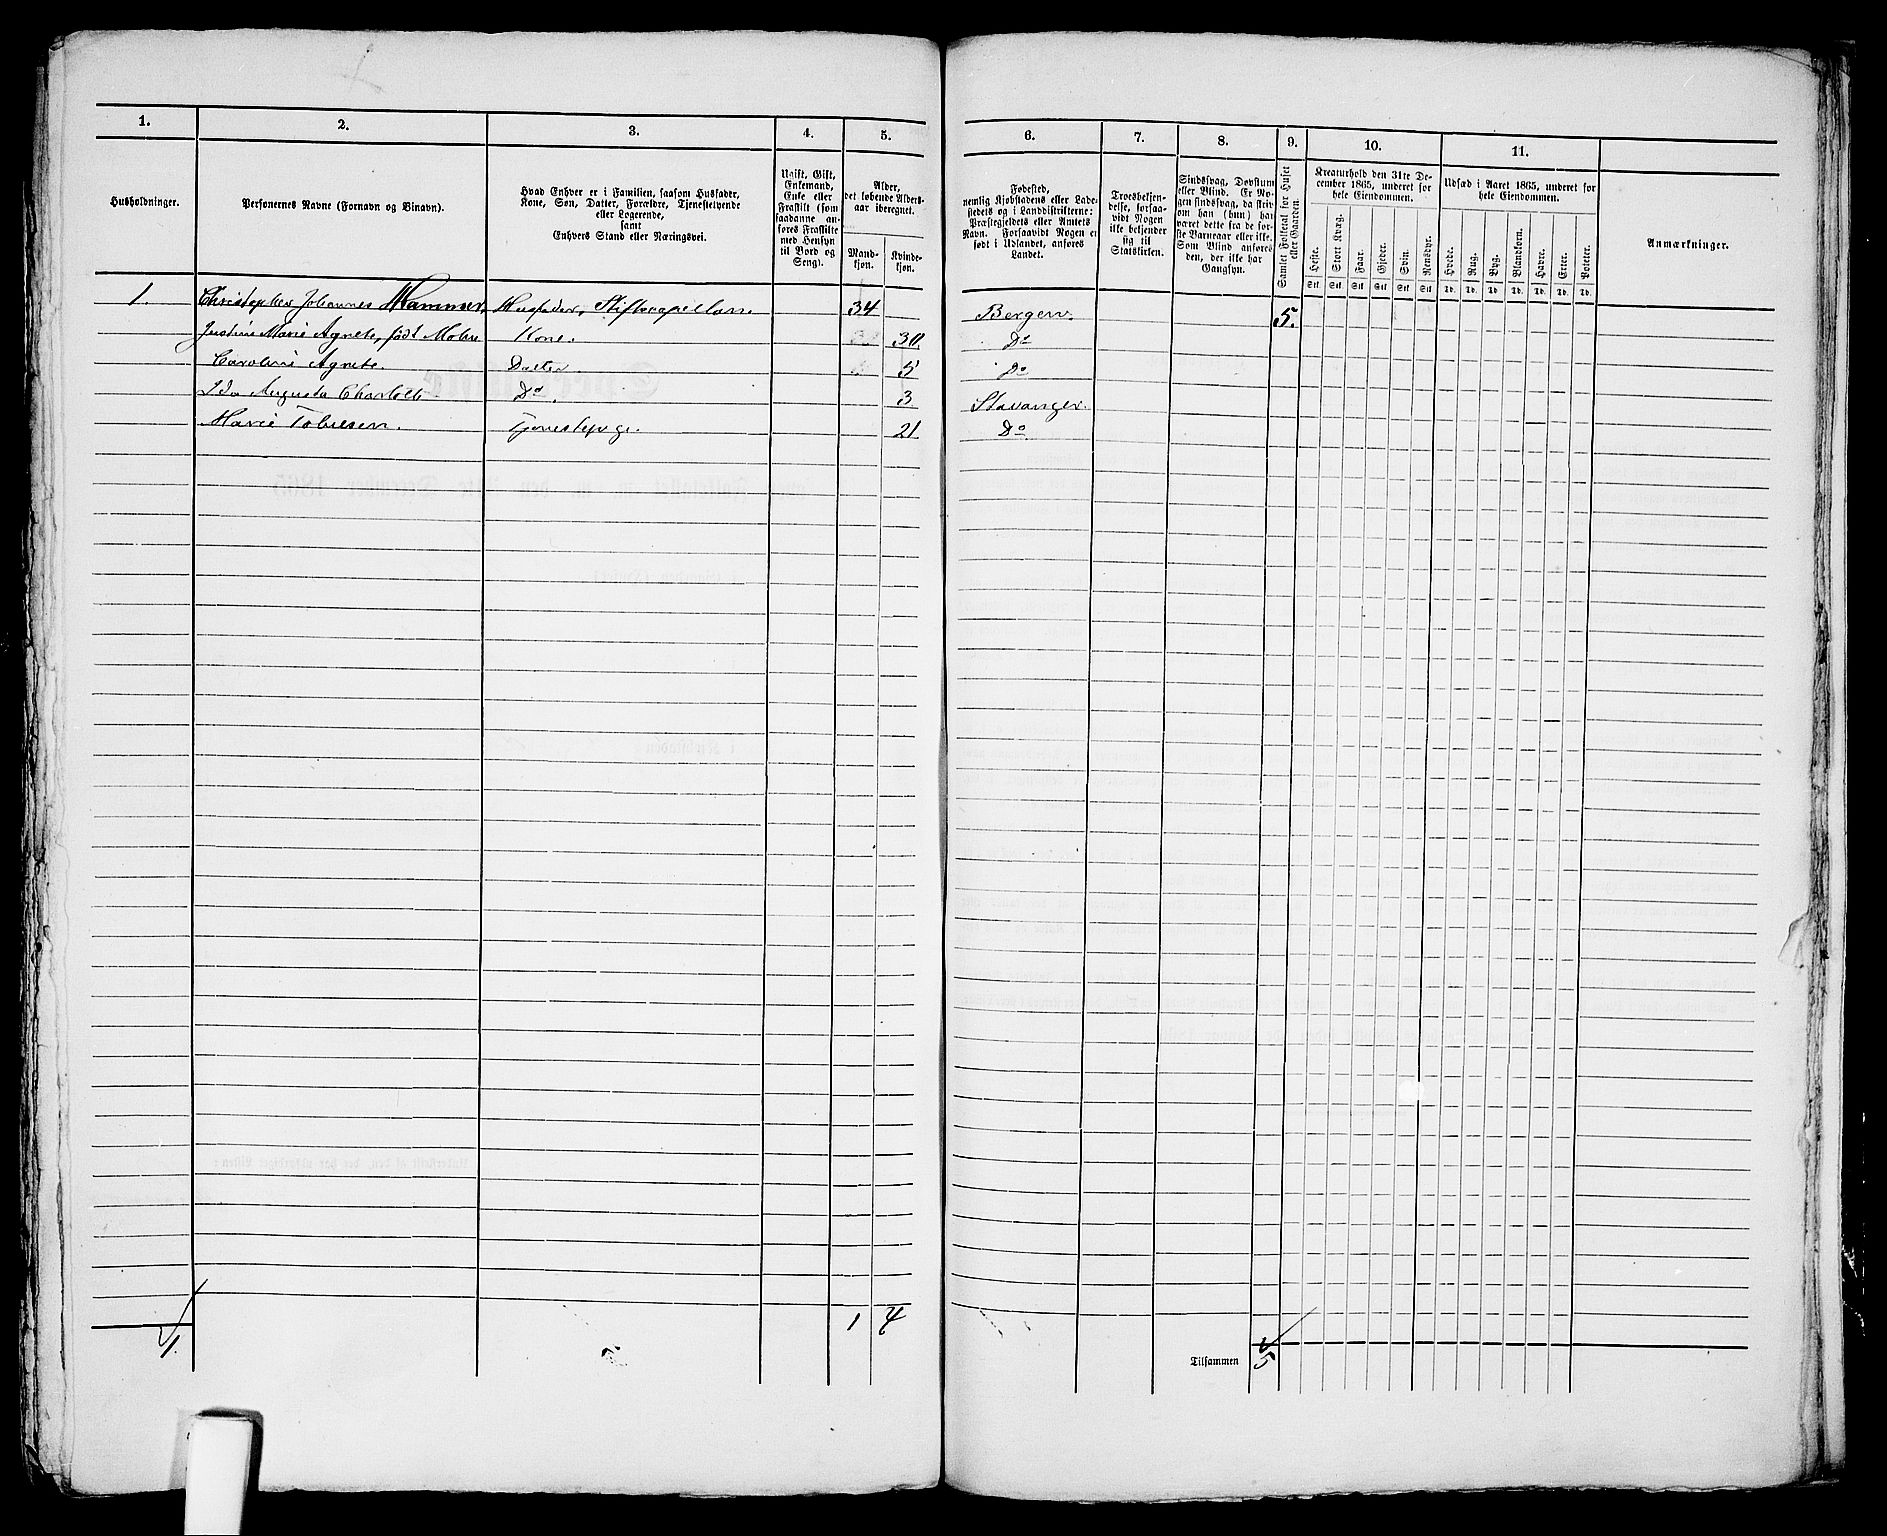 1.
2.
3.
4.
5.
6.
7.
8.
9.
10.
11.
Husholdninger.
Personernes Navne (Fornavn og Binavn).
Hvad Enhver er i Familien, saasom Husfader,
Kone, Søn, Datter, Forældre, Tjenestetyende
eller Logerende,
samt
Enhvers Stand eller Næringsvei.
Ugift, Gift,
Enkemand,
Enke eller
Fraskilt (som
saadanne an-
føres Fraskilte
med Hensyn
til Bord og
Seng).
Alder,
det løbende Alders-
aar iberegnet.
Mand-
kjøn.
Kvinde-
kjøn.
Fødested,
nemlig Kjøbstadens eller Lade-
stedets og i Landdistrikterne:
Præstegjeldets eller Annexets
Navn. Forsaavidt Nogen er
født i Udlandet, anføres
Landet.
Troesbekjen-
delse, forsaa-
vidt Nogen
ikke bekjender
sig til
Statskirken.
Sindssvag, Døvstum
eller Blind. (Er No-
gen sindssvag, da skriv
om han (hun) har
været dette fra de før-
ste Barneaar eller ikke.
Som Blind anføres
den, der ikke har
Gangsyn.
Samlet Folketal for Huset
eller Gaarden.
Kreaturhold den 31te De-
cember 1865, underet for
hele Eiendommen.
Heste.
Stort Kvæg.
Faar.
Gjeder.
Svin.
Rensdyr.
Stk. Stk. Stk. Stk. Stk. Stk.
Udsæd i Aaret 1865, underet for
hele Eiendommen.
Hvede.
Rug.
Byg.
Blandkorn.
Havre.
Erter.
Poteter.
Td. Td. Td. Td. Td. Td. Td.
Anmærkninger.
1. Christopher Johannes Hammer, Husfader, Stiftscapellan. 34 Bergen. 5.
Justine Marie Agnete, født Mohr Kone. 30 Do
Caroline Agnete. Datter. 5 Do
Ida Augusta Charlotte Do. 3 Stavanger.
Marie Tobiesen. Tjenestepige. 21 Do
1. 1 4
Tilsammen 5